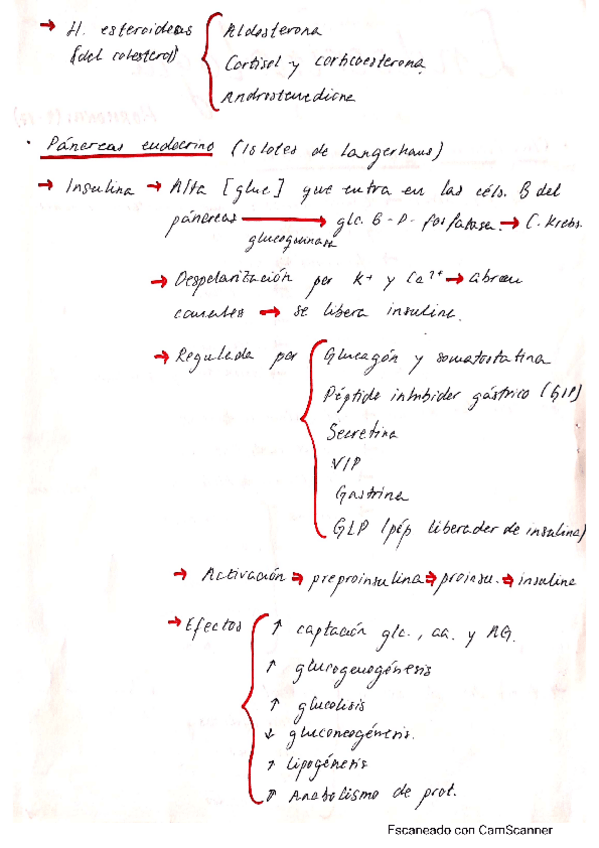 → H. esteroideas { Aldosterona
(del colesterol) Cortisol y corticoesterona
Androstenediona
· Páncreas endocrino (Islotes de Langerhans)
→ Insulina → Alta [gluc] que entra en las céls. B del
páncreas → glc. 6-P-fosfatasa. → C. Krebs.
glucoquinasa
→ Despolarización por K+ y Ca2+ → abren
canales → se libera insulina.
→ Regulada por { Glucagón y somatostatina
Péptido inhibidor gástrico (GIP)
Secretina
VIP
Gastrina
GLP (pép liberador de insulina)
→ Activación ⇒ preproinsulina ⇒ proinsu. ⇒ insulina
→ Efectos { ↑ captación glc., aa. y AG.
↑ glucogenogénesis
↑ glucolisis
↓ gluconeogénesis.
↑ lipogénesis
↑ Anabolismo de prot.
Escaneado con CamScanner